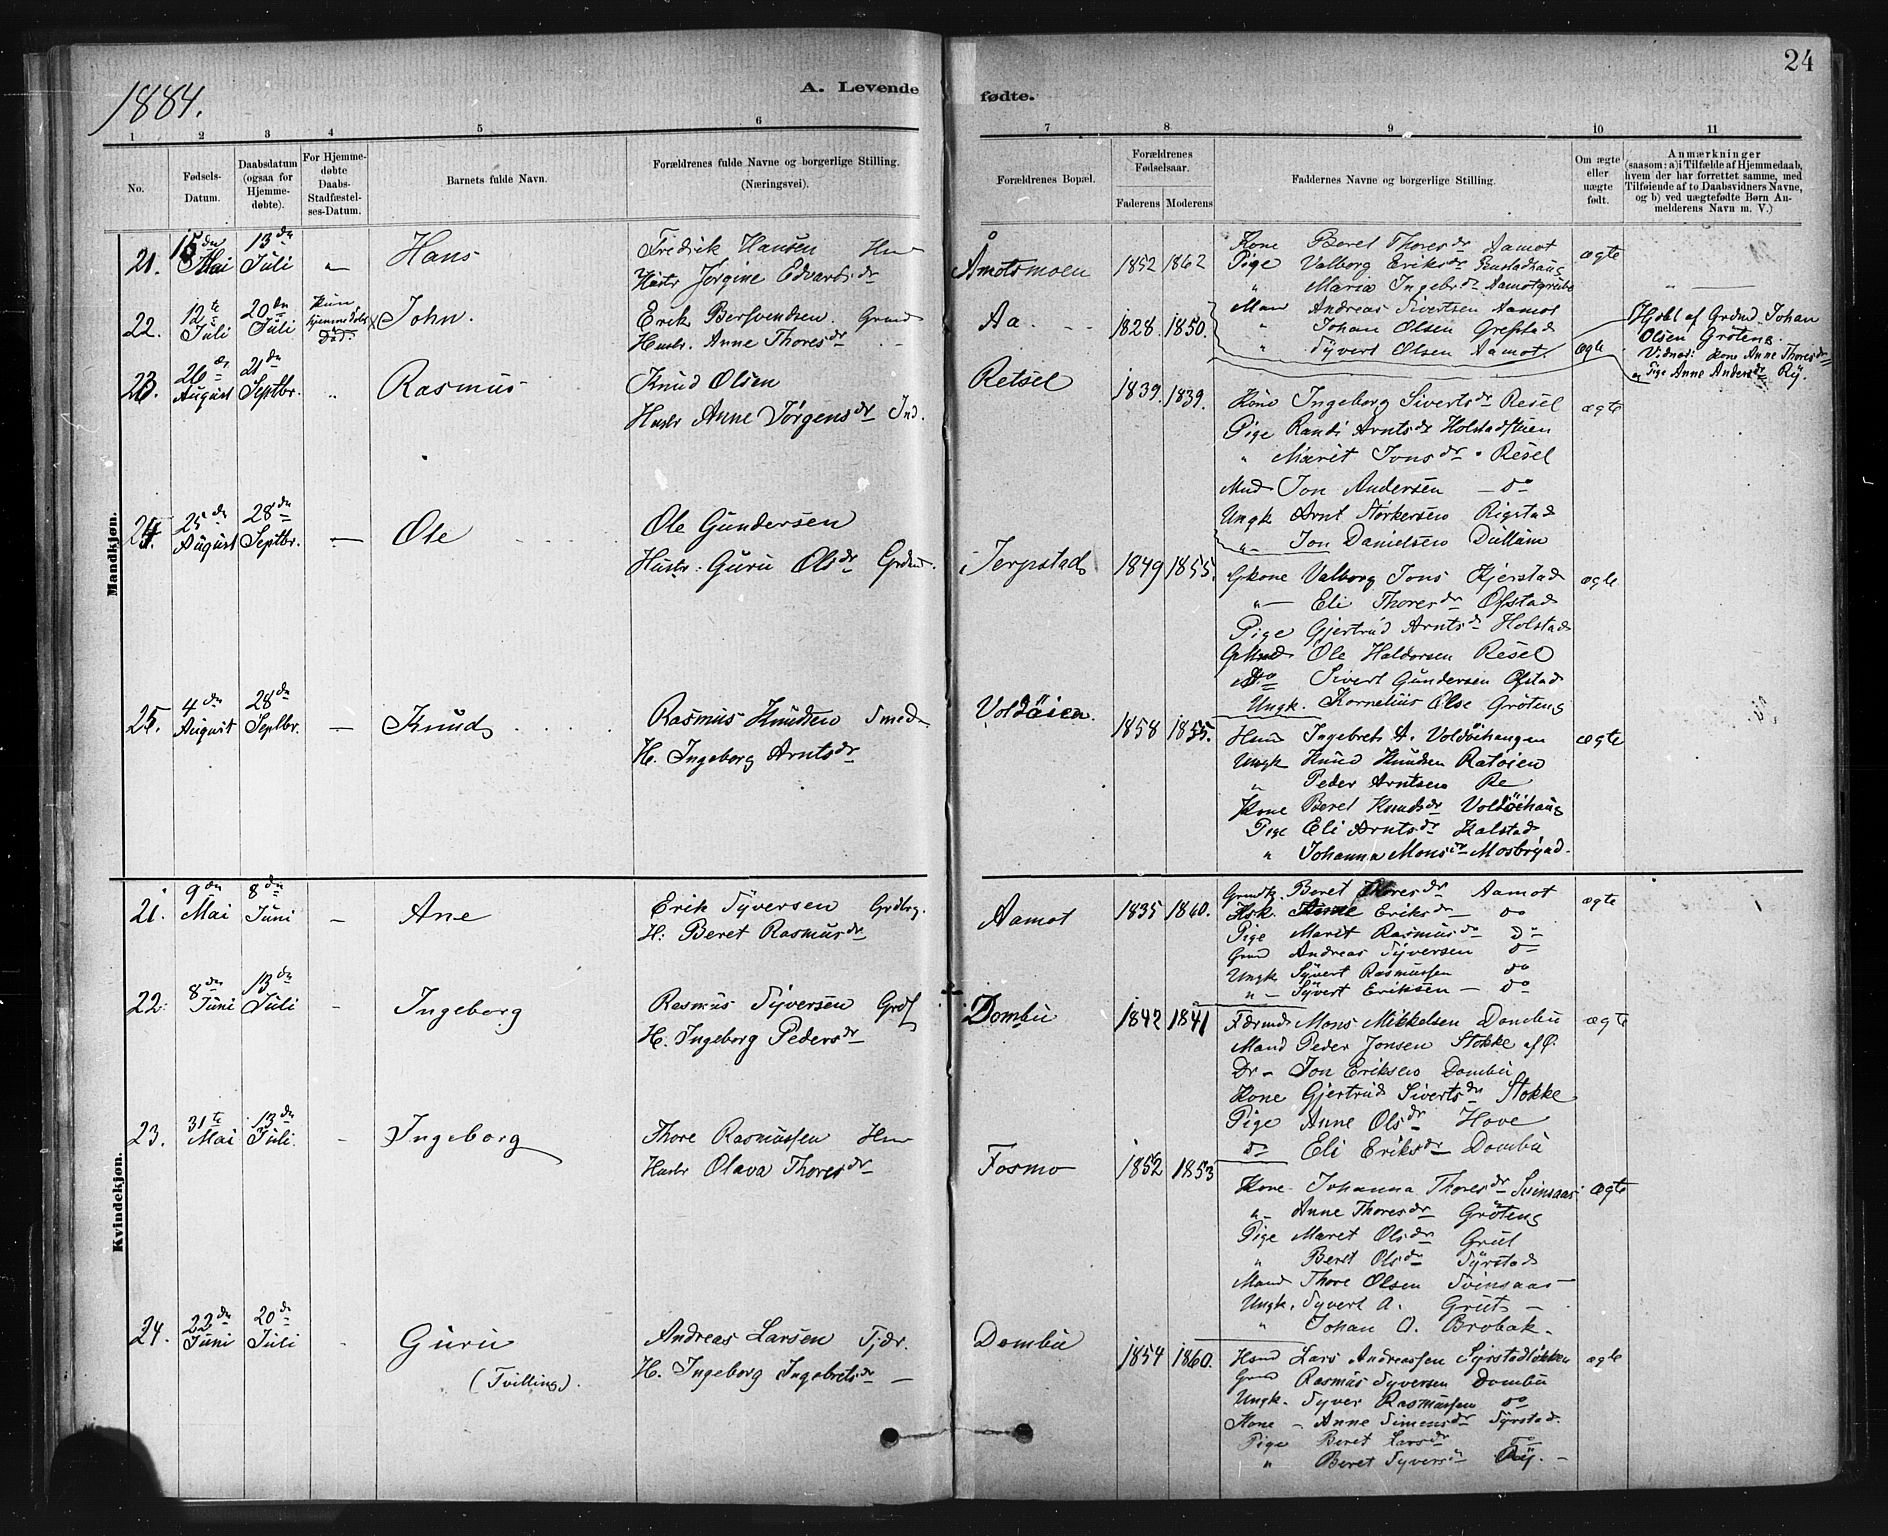 24
1884.
A. Levende fødte.
1 2 3 4 5 6 7 8. 9 10 11
No.
Fødsels-Datum.
Daabsdatum (ogsaa for Hjemmedøbte).
For Hjemmedøbte Daabs-Stadfæstelses-Datum.
Barnets fulde Navn.
Forældrenes fulde Navne og borgerlige Stilling. (Næringsvei).
Forældrenes Bopæl.
Forældrenes Fødselsaar.
Faderens Moderens
Faddernes Navne og borgerlige Stilling.
Om ægte eller uægte født.
Anmærkninger (saasom: a) i Tilfælde af Hjemmedaab, hvem der har forrettet samme, med Tilføiende af to Daabsvidners Navne, og b) ved uægtefødte Børn Anmelderens Navn m. V.)
Mandkjøn.
21. 15de Mai 13de Juli " Hans
Fredrik Hansen Hm
Hustr Jørgine Edvardsdr
Åmotsmoen 1852 1862
Kone Beret Thoresdr Aamot
Pige Valborg Eriksdr
" Maria Ingebr.dr Aamotgrube
ægte
22. 12te Juli 20de Juli kun hjemmedøbt Død. John.
Erik Bersvendsen. Grmd
Hustr. Anne Thoresdr
Aa 1828. 1850.
Mand Andreas Sivertsen Aamot
" Johan Olsen Grefstad
" Syvert Olsen Aamot.
ægte
Hdbt af Grdmd Johan
Olsen Grøteng.
Vidner: Kone Anne Thoresdr
og Pige Anne Andersdr Ry.
23. 26de August 21de Septbr. " Rasmus
Knud Olsen
Hustr Anne Jørgensdr Ind.
Retsel 1839. 1839.
Kone Ingeborg Sivertsdr Resel
Pige Randi Arntsdr Holstadstuen
" Marit Jonsdr Resel
Mnd Jon Andersen do
Ungk Arnt Størkersen Rigstad
" Jon Danielsen Dullum
ægte
24. 25de August 28de Septbr. — Ole
Ole Gundersen
Hustr: Guru Olsdr Grdmd.
Jerpstad 1849 1855.
Gkone Valborg Jons Kjerstad
" Eli Thoresdr Ofstad
Pige Gjertrud Arntsdr Holstad
Gmd Ole Haldorsen Resel
do Sivert Gundersen Ofstad
Ungk. Kornelius Olse Grøteng
ægte
25. 4de August 28de Septbr. — Knud
Rasmus Knudsen Smed
H. Ingeborg Arntsdr
Voldøien. 1858 1855.
Hmd Ingebret A. Voldøihaugen
Ungk Knud Knudsen Ratøien
" Peder Arntsen Re
Kone Beret Knudsdr Voldøihaug
Pige Eli Arntsdr Halstad
" Johanna Monsdr Mosbrynd.
ægte
Kvindekjøn.
21. 9de Mai 8de Juni — Ane
Erik Syversen Grdbrg.
H: Beret Rasmusdr
Aamot 1835 1840.
Grmdk. Beret Thoresdr Aamot
Hsk. Anne Eriksdr do
Pige Marit Rasmusdr do
Gmd Andreas Syversen do
Ungk Syvert Rasmussen do
" Syvert Eriksen do
ægte
22. 8de Juni 13de Juli — Ingeborg
Rasmus Syversen Grdf
H. Ingeborg Pedersdr
Dombu 1842 1841
Førmd Mons Mikkelsen Dombu
Mand Peder Jonsen Stokke af O.
Do — Jon Eriksen Dombu
Kone Gjertrud Sivertsdr Stokke
Pige Anne Olsdr Hove
do Eli Eriksdr Dombu
ægte
23. 31te Mai 13de Juli. — Ingeborg
Thore Rasmussen Hm
Hustr Olava Thoresdr
Fosmo 1852 1853
Kone Johanna Thoresdr Svinsaas
" Anne Thoresdr Grøteng
Pige Maret Olsdr Grut
" Beret Olsdr Syrstad
Mand Thore Olsen Svinsaas
Ungk. Syvert A. Grut
" Johan O. Brobak.
ægte
24. 22de Juni 20de Juli — Guru
(Tvilling).
Andreas Larsen Tjær.
H. Ingeborg Ingebretsdr —
Dombu 1854 1860.
Hmd Lars Andreassen Syrstadløkken
Gmd Rasmus Syversen Dombu
Ungk. Syver Rasmussen do
Kone — Anne Simensdr Syrstad.
Pige Beret Larsdr do
" Beret Syversdr Ry.
ægte